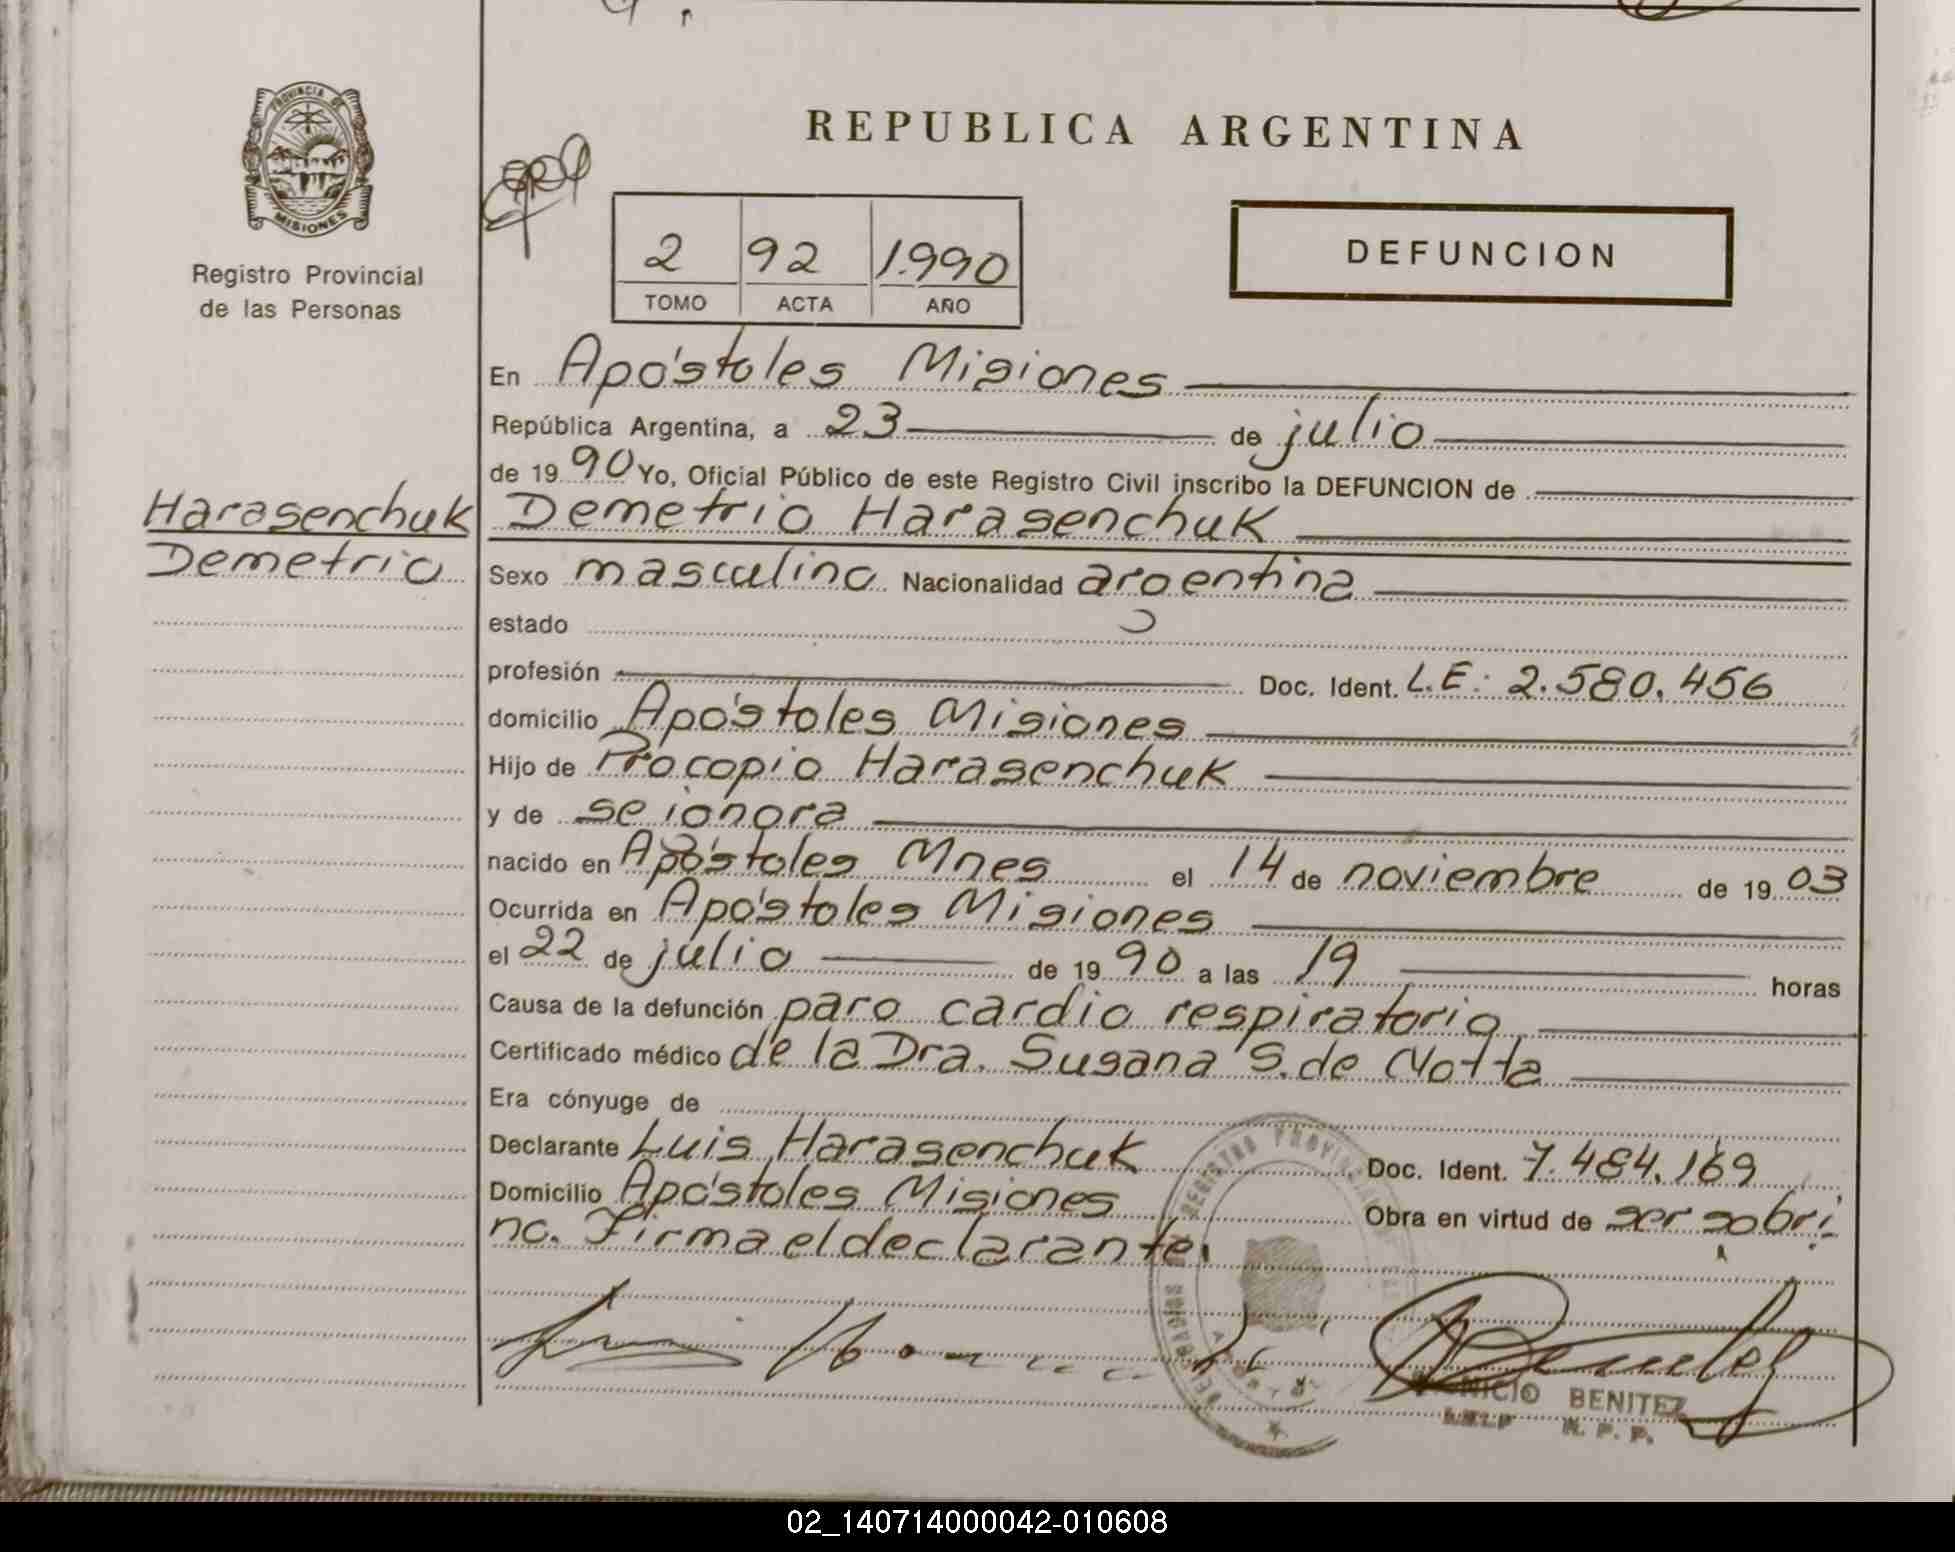 REPUBLICA ARGENTINA
PROVINCIA DE
MISIONES
Registro Provincial
de las Personas
2 92 1.990
TOMO ACTA AÑO
DEFUNCION
En Apóstoles Misiones
República Argentina, a 23 de julio
de 19 90 Yo, Oficial Público de este Registro Civil inscribo la DEFUNCION de
Harasenchuk
Demetrio
Demetrio Harasenchuk
Sexo masculino Nacionalidad argentina
estado
profesión Doc. Ident. L.E: 2.580.456
domicilio Apóstoles Misiones
Hijo de Procopio Harasenchuk
y de se ignora
nacido en Apóstoles Mnes el 14 de noviembre de 19 03
Ocurrida en Apóstoles Misiones
el 22 de julio de 19 90 a las 19 horas
Causa de la defunción paro cardio respiratorio
Certificado médico de la Dra. Susana S. de Motta
Era cónyuge de
Declarante Luis Harasenchuk Doc. Ident. 7.484.169
Domicilio Apóstoles Misiones Obra en virtud de ser sobri
no. Firma el declarante.
REGISTRO PROVINCIAL
BENITEZ
R. P. P.
02_140714000042-010608